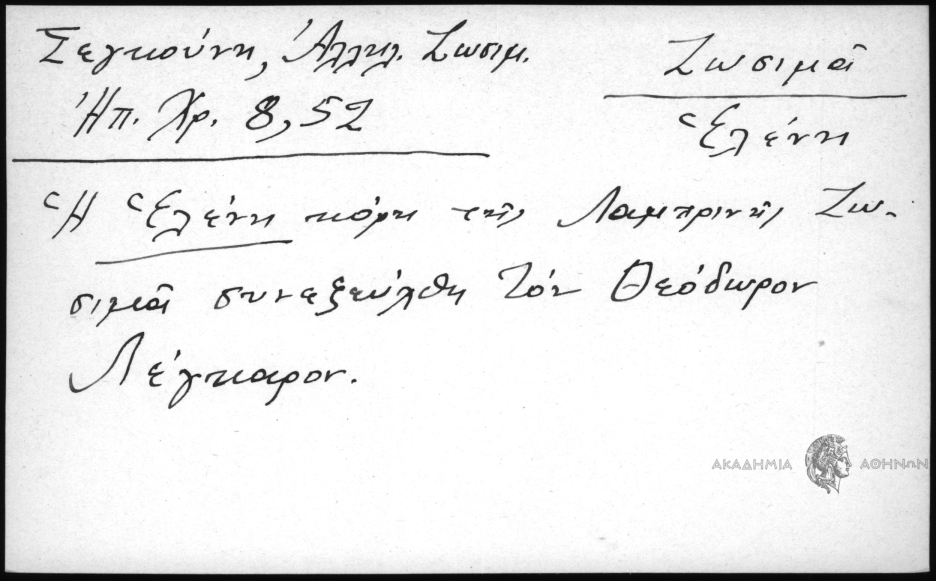 Σεγκούνη, Ἀλληλ. Ζωσιμ.
Ἠπ. Χρ. 8, 52
Ζωσιμᾶ
Ἑλένη
Ἡ Ἑλένη κόρη τῆς Λαμπρινῆς Ζω-
σιμᾶ συνεζεύχθη τόν Θεόδωρον
Λέγκαρον.
ΑΚΑΔΗΜΙΑ ΑΘΗΝΩΝ